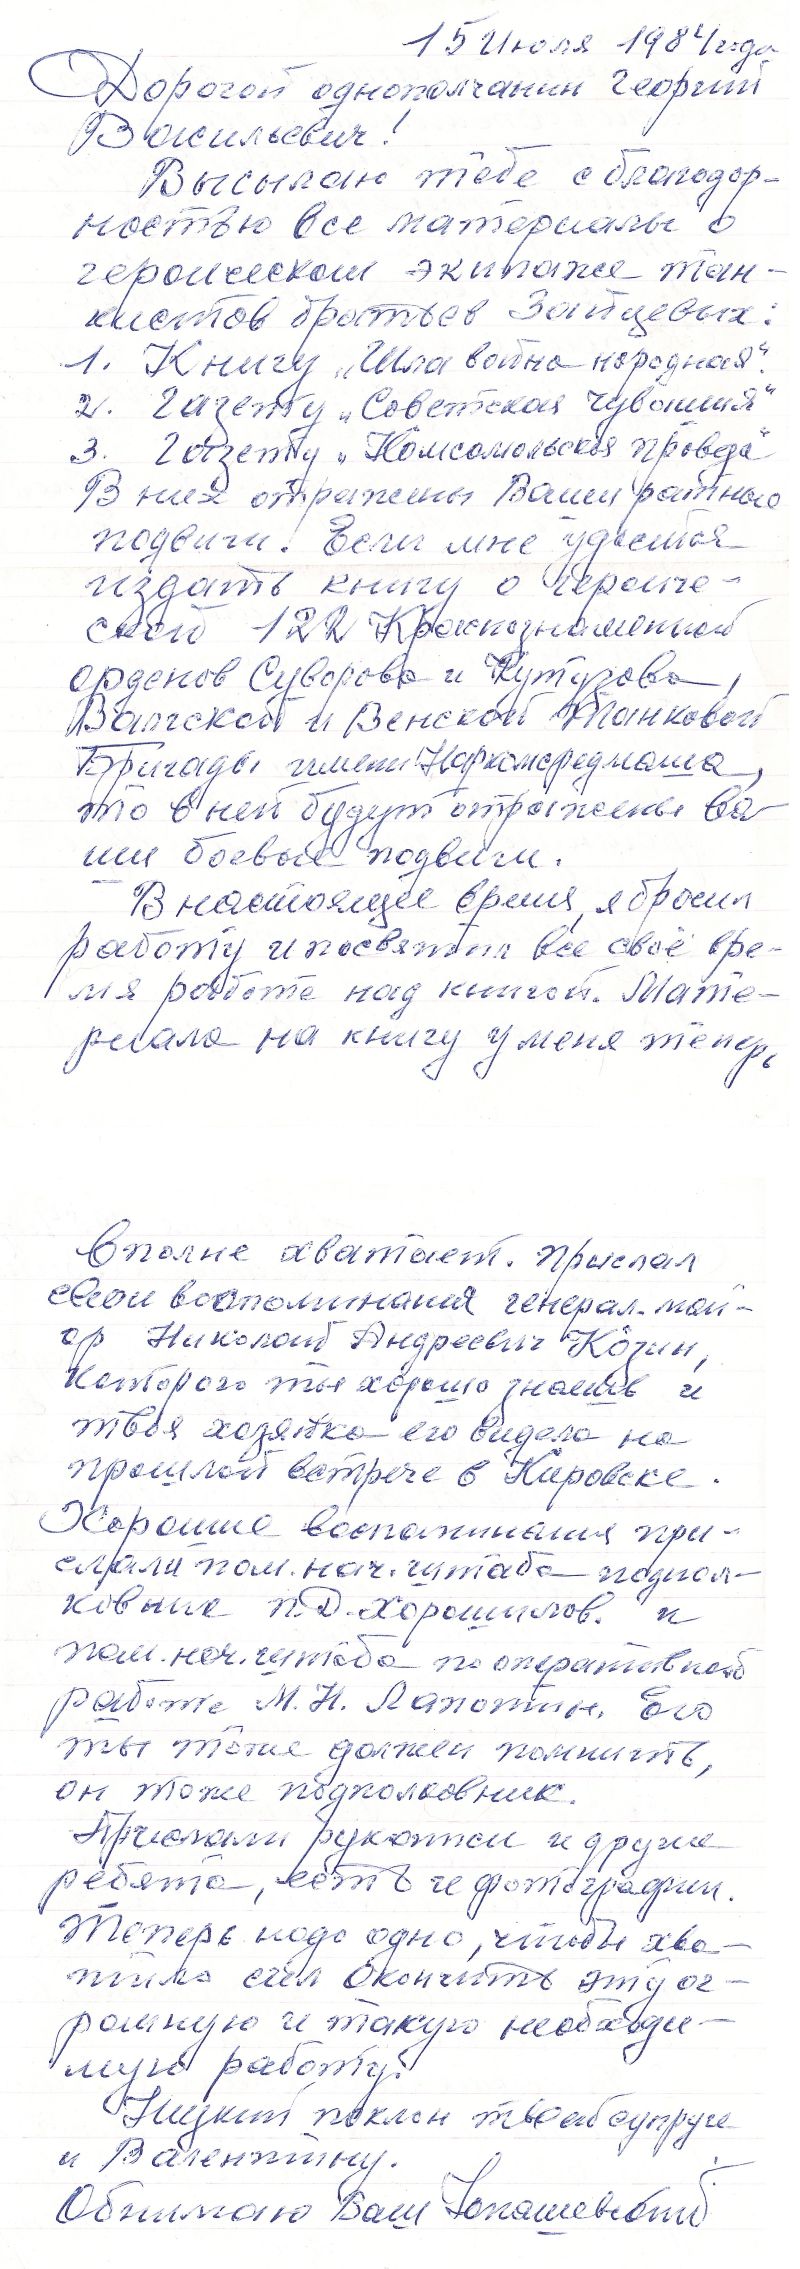 15 Июля 1984 года
Дорогой однополчанин Георгий
Васильевич!
Высылаю тебе с благодар-
ностью все материалы о
героическом экипаже тан-
кистов братьев Зайцевых:
1. Книгу „Шла война народная“.
2. Газету „Советская Чувашия“
3. Газету „Комсомольская правда“
В них отражены Ваши ратные
подвиги. Если мне удастся
издать книгу о героиче-
ской 122 Краснознаменной
орденов Суворова и Кутузова,
Вапгской и Венской Танковой
Бригады имени Наркомсредмаша,
то в ней будут отражены ва-
ши боевые подвиги.
В настоящее время, я бросил
работу и посвятил все своё вре-
мя работе над книгой. Мате-
риала на книгу у меня теперь
вполне хватает. Прислал
свои воспоминания генерал-май-
ор Николай Андреевич Козин,
которого ты хорошо знаешь и
твоя хозяйка его видела на
прошлой встрече в Кировске.
Хорошие воспоминания при-
слали пом. нач. штаба подпол-
ковник П.Д. Хорошилов. и
пом. нач. штаба по оперативной
работе М.Н. Лапотин. Его
ты тоже должен помнить,
он тоже подполковник.
Прислали рукописи и другие
ребята, есть и фотографии.
Теперь надо одно, чтобы хва-
тило сил окончить эту ог-
ромную и такую необходи-
мую работу.
Низкий поклон твоей супруге
и Валентину.
Обнимаю Ваш